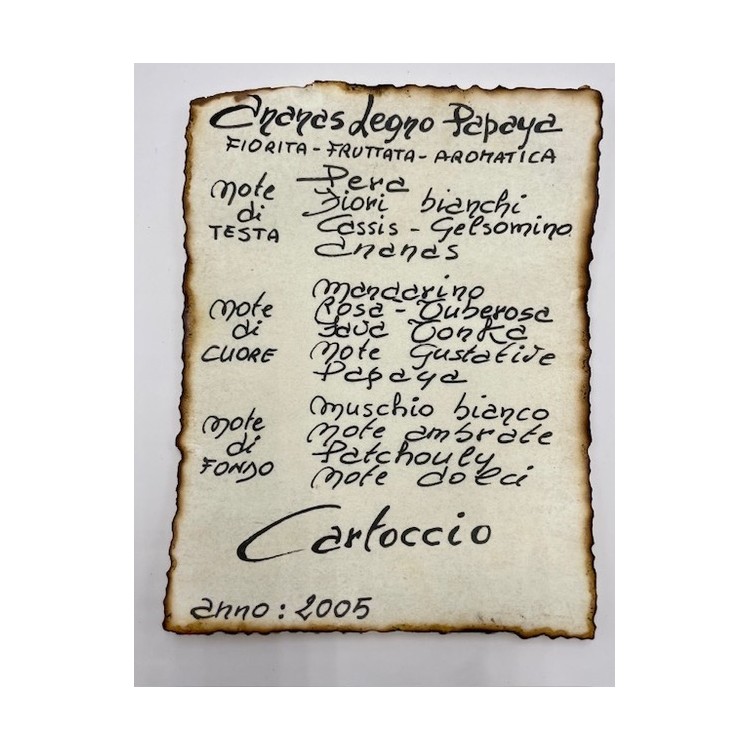 Ananas Legno Papaya
FIORITA - FRUTTATA - AROMATICA
note di TESTA
Pera
Fiori bianchi
Cassis - Gelsomino
ananas
note di CUORE
mandarino
Rosa - Tuberosa
Fava Tonka
note Gustative
Papaya
note di FONDO
muschio bianco
note ambrate
Patchouly
note dolci
Cartoccio
anno: 2005